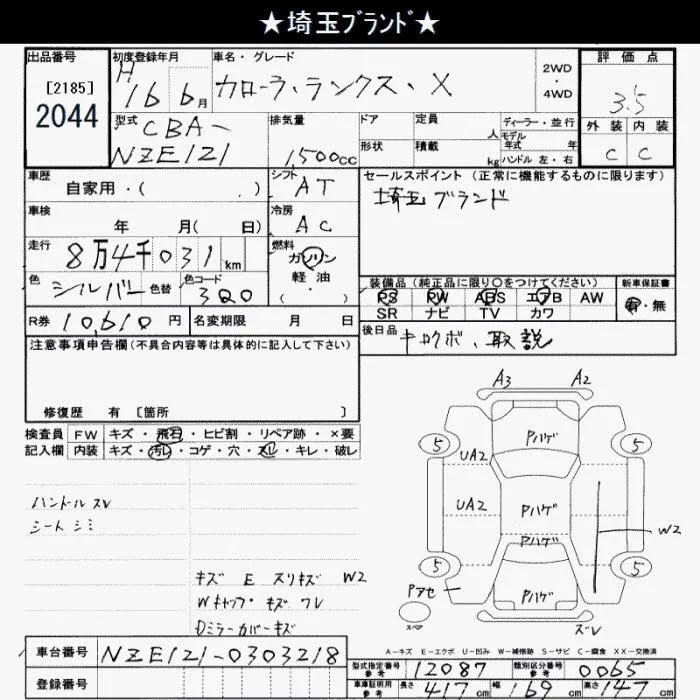 ★埼玉ブランド★
出品番号
[2185]
2044
初度登録年月
H 16 6月
車名・グレード
カローラ、ランクス、X
2WD
・
4WD
評価点
3.5
外装 内装
C C
型式
CBA-
NZE121
排気量
1,500cc
ドア
定員
人
形状
積載
kg
ディーラー・並行
モデル
年式 年
ハンドル 左・右
車歴
自家用・( )
シフト
AT
セールスポイント (正常に機能するものに限ります)
埼玉ブランド
車検
年 月( 日)
冷房
AC
走行
8万4千031km
燃料
ガソリン
軽油
・
( )
色
シルバー
色替
色コード
3Q0
装備品 (純正品に限り○をつけてください)
PS PW ABS エアB AW
SR ナビ TV カワ
新車保証書
有・無
R券 10,610円
名変期限 月 日
後日品
キロクボ、取説
注意事項申告欄(不具合内容等は具体的に記入して下さい)
修復歴 有 [箇所 ]
検査員
記入欄
FW キズ・飛石・ヒビ割・リペア跡・×要
内装 キズ・汚レ・コゲ・穴・スレ・キレ・破レ
ハンドルスレ
シートシミ
キズ E スリキズ W2
Wキャップキズ ワレ
Dミラーカバーキズ
A3 A2
Pハゲ
5 5
UA2
UA2
Pハゲ
Pハゲ
W2
5 5
Pアセ
Pハゲ
スペア
ズレ
A-キズ E-エクボ U-凹み W-補修跡 S-サビ C-腐食 XX-交換済
車台番号 NZE121-0303218
登録番号
型式指定番号
参考
12087
類別区分番号
参考
0065
車庫証明用
参考
長さ 417cm
幅 169cm
高さ 147cm